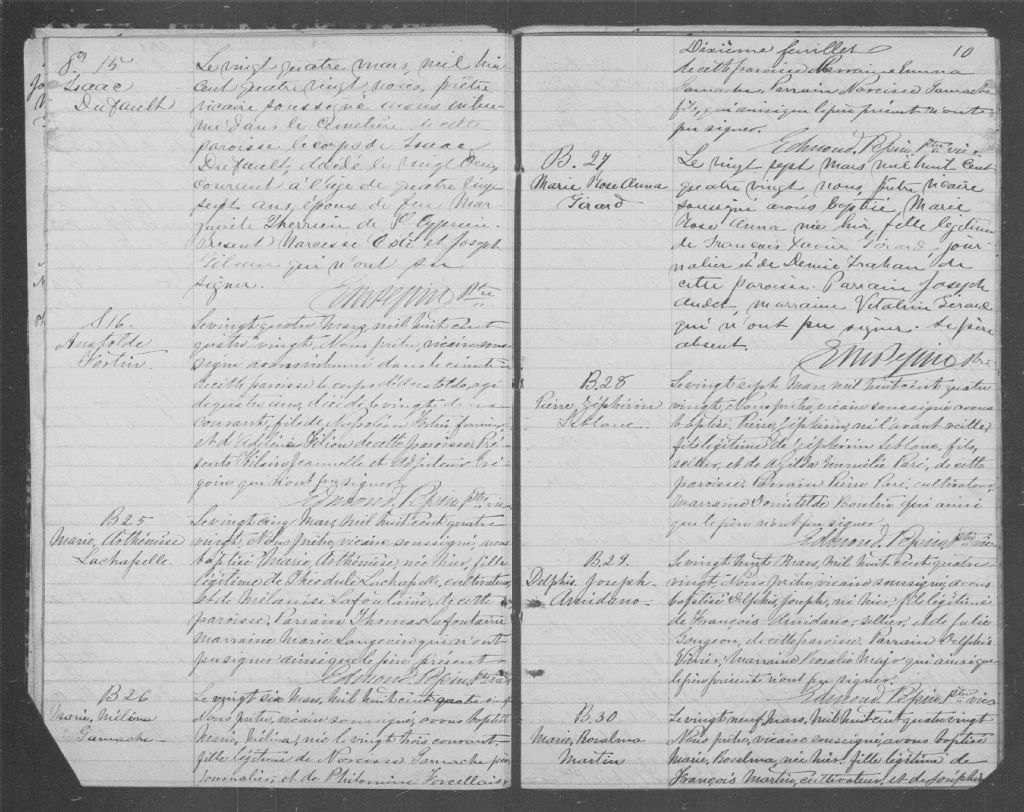 S 15
Isaac
Dufault
Le vingt quatre mars, mil huit
cent quatre vingt nous, prêtre
vicaire soussigné avons inhu-
mé dans le cimetière de cette
paroisse le corps de Isaac
Dufault, décédé le vingt deux
courant à l'age de quatre vingt
sept ans, époux de feu Mar-
guerite Therrien de St Cyprien.
Présent Narcisse Coté et Joseph
qui n'ont pu
signer.
Em Pepin Ptre
S 16.
Anatolde
Fortin
Le vingt quatre Mars, mil huit cent
quatre vingt, Nous prêtre, vicaire sous-
signé avons inhumé dans le cimetière
de cette paroisse le corps d'Anatolde, agé
de quatre ans, décédé le vingt deux
courant, fils de Napoléon Fortin
et d'Adeline Filion de cette paroisse. Pré-
sents Hilaire Jeannelle et Adjuteur Gré-
goire qui n'ont pu signer.
Edmond, Pepin, Ptre vic.
B 25
Marie, Arthémise
Lachapelle
Le vingt cinq Mars, Mil huit cent quatre
vingt, Nous prêtre, vicaire soussigné, avons
baptisé Marie, Arthémise, née hier, fille
légitime de Théodule Lachapelle, cultivateur,
et de Mélanise Lafontaine, de cette
paroisse. Parrain Thomas Lafontaine
Marraine Marie Langevin qui n'ont
pu signer ainsi que le père présent
Edmond, Pepin, Ptre vic
B 26
Marie, Mélina
Gamache
Le vingt six Mars, Mil huit cent quatre vingt
Nous prêtre, vicaire soussigné, avons baptisé
Marie, Mélina, née le vingt trois courant,
fille légitime de Narcisse Gamache père,
Journalier, et de Philomine Forcellais,
Dixième feuillet
10
de cette paroisse Marraine Emma
Gamache, Parrain Narcisse Gamache
fils, qui ainsi que le père présent n'ont
pu signer.
Edmond, Pepin, Ptre vic.
B. 27
Marie Rose Anna
Girard
Le vingt sept Mars mil huit cent
quatre vingt nous, prêtre vicaire
soussigné avons baptisé, Marie
Rose Anna née hier, fille légitime
de François Xavier Girard, jour-
nalier et de Denise Trahan de
cette paroisse. Parrain Joseph
Audet, marraine Vitaline Girard
qui n'ont pu signer. Le père
absent.
Em Pepin Ptre
B 28
Pierre Zéphirin
Leblanc
Le vingt sept Mars mil huit cent quatre
vingt, Nous prêtre, vicaire soussigné avons
baptisé, Pierre, Zéphirin, né l'avant veille,
fils légitime de Zéphirin Leblanc, fils,
sellier, et de Azilda Emmélie Paré, de cette
paroisse. Parrain Pierre Paré, cultivateur,
marraine Domitilde Boutin qui ainsi
que le père n'ont pu signer.
Edmond, Pepin, Ptre vic
B. 29
Delphis, Joseph
Amidano
Le vingt huit Mars, mil huit cent quatre
vingt, Nous prêtre, vicaire soussigné, avons
baptisé Delphis, Joseph, né hier, fils légitime
de François Amidano, sellier, et de Julie
Gougeon, de cette paroisse. Parrain Delphis
Viner, Marraine Rosalie Major qui ainsi que
le père présents n'ont pu signer.
Edmond, Pepin, Ptre vic
B. 30
Marie, Rosalma
Martin
Le vingt neuf, Mars, mil huit cent quatre vingt
Nous prêtre, vicaire soussigné, avons baptisé
Marie, Rosalma, née hier, fille légitime de
François Martin, cultivateur, et de Josephte